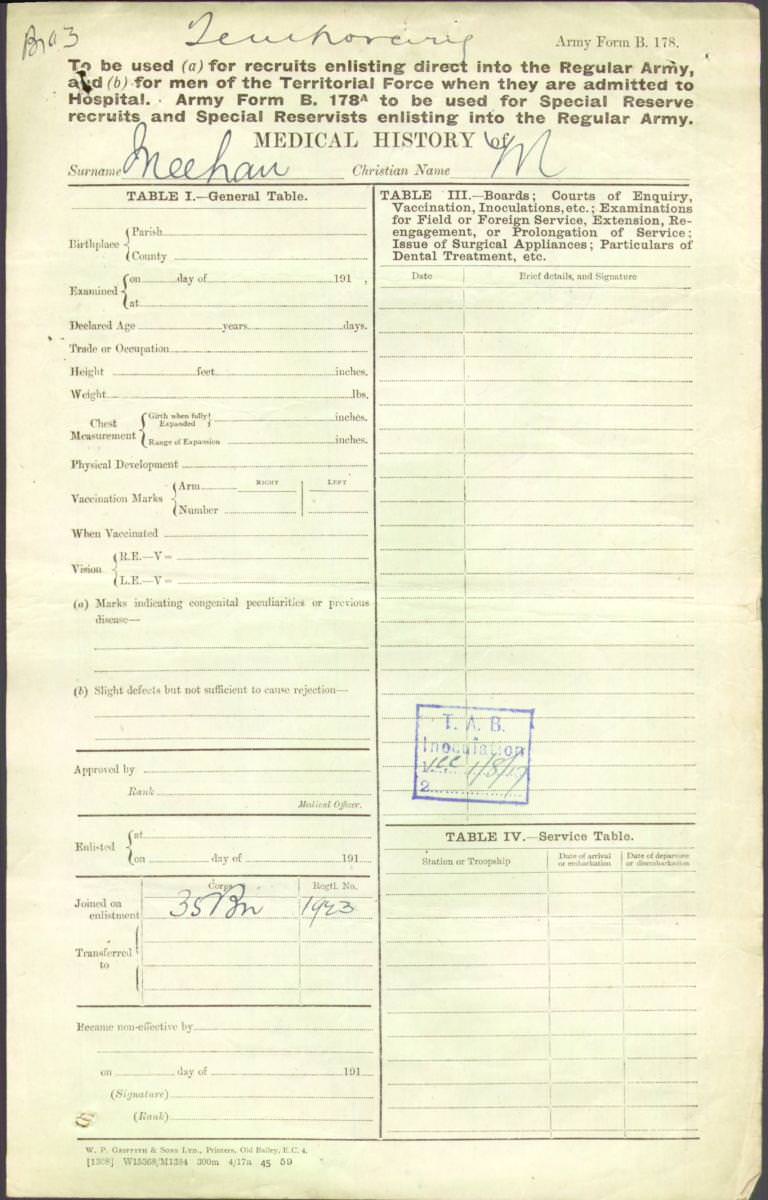 Temporary
Army Form B. 178.
To be used (a) for recruits enlisting direct into the Regular Army,
and (b) for men of the Territorial Force when they are admitted to
Hospital. Army Form B. 178A to be used for Special Reserve
recruits and Special Reservists enlisting into the Regular Army.
MEDICAL HISTORY of
Surname Meehan Christian Name M
TABLE I.—General Table.
Birthplace { Parish
County
Examined { on day of 191 ,
at
Declared Age years days.
Trade or Occupation
Height feet inches.
Weight lbs.
Chest Measurement { Girth when fully Expanded } inches.
Range of Expansion inches.
Physical Development
Vaccination Marks { Arm RIGHT LEFT
Number
When Vaccinated
Vision { R.E.—V =
L.E.—V =
(a) Marks indicating congenital peculiarities or previous
disease—
(b) Slight defects but not sufficient to cause rejection—
Approved by
Rank
Medical Officer.
Enlisted { at
on day of 191
Corps Regtl. No.
Joined on
enlistment 35 Bn 1923
Transferred
to
Became non-effective by
on day of 191
(Signature)
(Rank)
TABLE III.—Boards; Courts of Enquiry,
Vaccination, Inoculations, etc.; Examinations
for Field or Foreign Service, Extension, Re-
engagement, or Prolongation of Service;
Issue of Surgical Appliances; Particulars of
Dental Treatment, etc.
Date Brief details, and Signature
T. A. B.
Inoculation
1/8/17
2
TABLE IV.—Service Table.
Station or Troopship Date of arrival or embarkation Date of departure or disembarkation
W. P. GRIFFITH & SONS LTD., Printers, Old Bailey, E.C. 4.
[1308] W15368/M1384 300m 4/17a 45 59